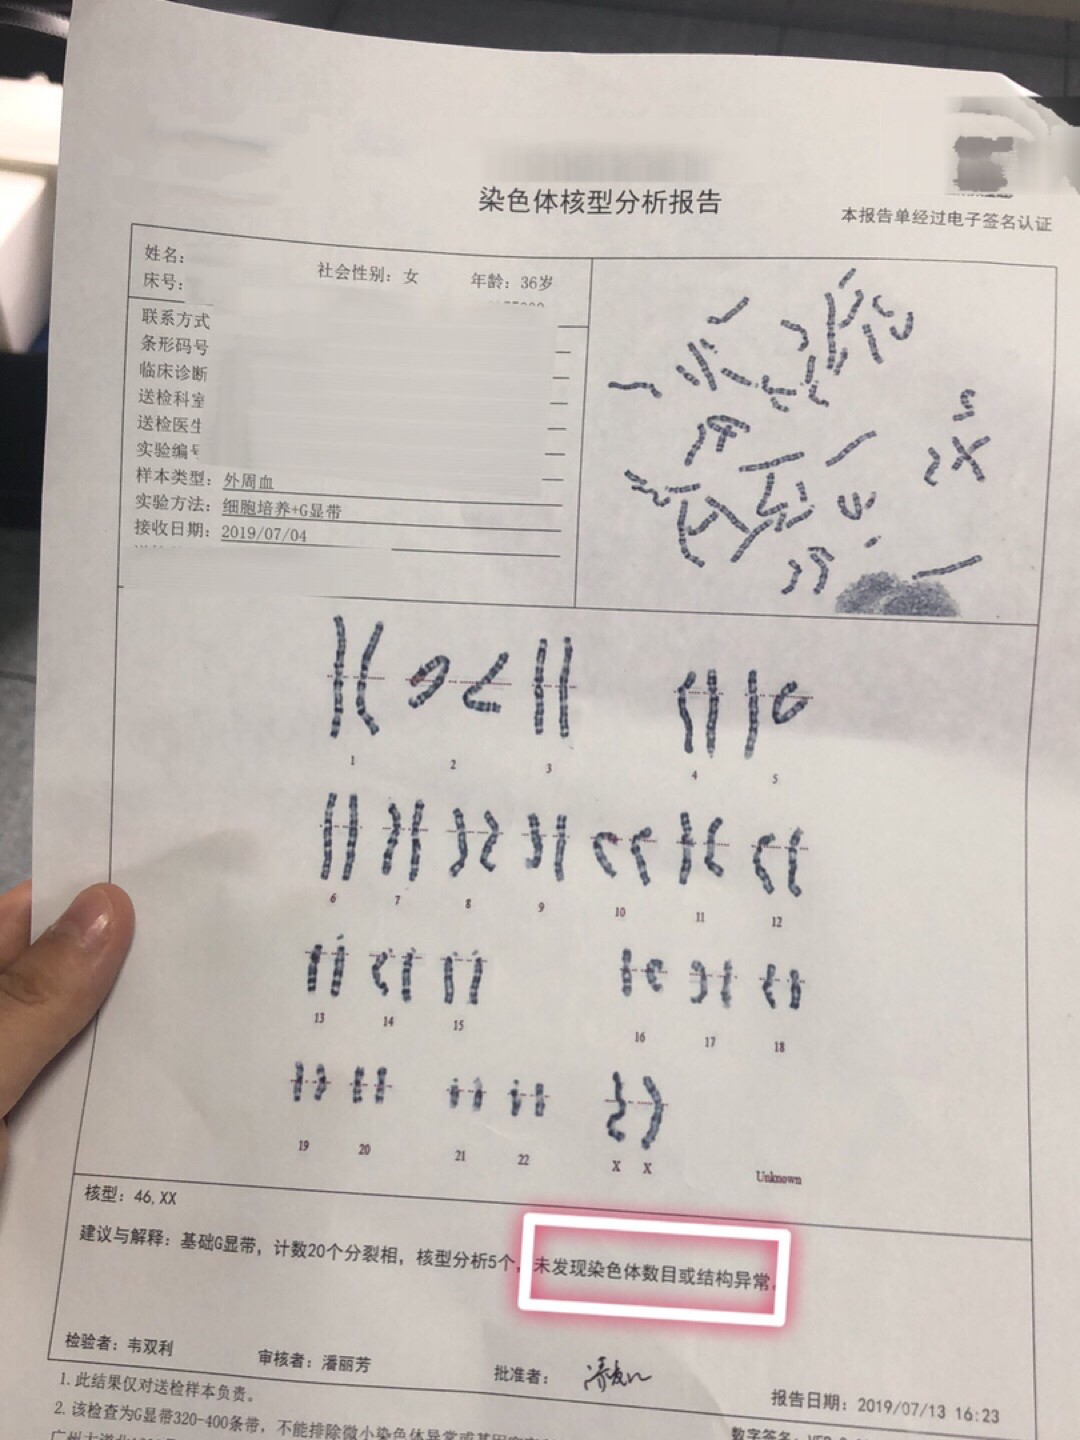 染色体核型分析报告
本报告单经过电子签名认证
姓名：
社会性别：女
年龄：36岁
床号：
联系方式
条形码号
临床诊断
送检科室
送检医生
实验编号
样本类型：外周血
实验方法：细胞培养+G显带
接收日期：2019/07/04
1 2 3 4 5
6 7 8 9 10 11 12
13 14 15 16 17 18
19 20 21 22 X X
Unknown
核型：46,XX
建议与解释：基础G显带，计数20个分裂相，核型分析5个，未发现染色体数目或结构异常。
检验者：韦双利
审核者：潘丽芳
批准者：
报告日期：2019/07/13 16:23
1.此结果仅对送检样本负责。
2.该检查为G显带320-400条带，不能排除微小染色体异常或基因
数字签名：
广州大道北